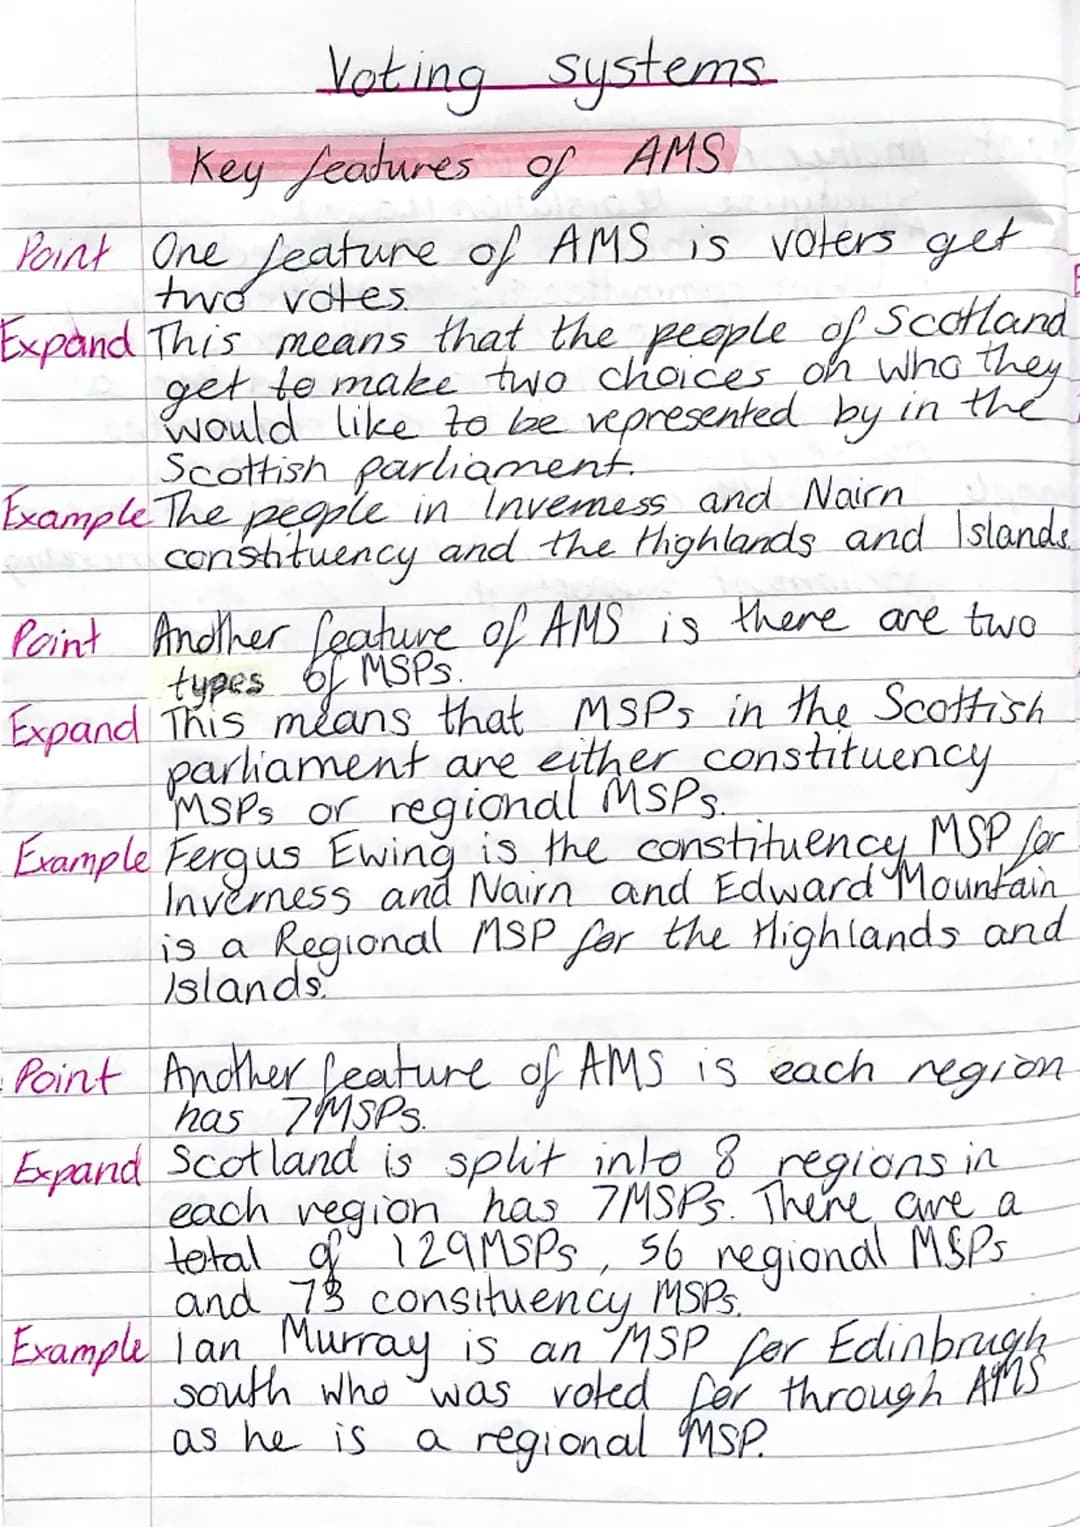 Voting systems
Key features of AMS
Point One feature of AMS is voters get
two votes.
Expand This means that the people of Scotland
get to make two choices on who they
would like to be represented by in the
Scottish parliament.
Example The people in Inverness and Nairn
constituency and the Highlands and Islands.
Point Another feature of AMS is there are two
types of MSPs.
Expand This means that MSPs in the Scottish
parliament are either constituency
MSPs or regional MSPs.
Example Fergus Ewing is the constituency MSP for
Inverness and Nairn and Edward Mountain
is a Regional MSP for the Highlands and
Islands.
Point Another feature of AMS is each region
has 7MSPs.
Expand Scotland is split into 8 regions in
each region has 7MSPs. There are a
total of 129MSPs, 56 regional MSPs
and 73 consituency MSPs.
Example Ian Murray is an MSP for Edinbrugh
south who was voted for through AMS
as he is a regional MSP.